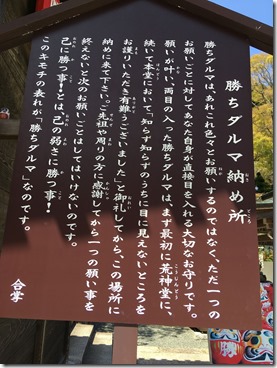 勝ちダルマ納め所
勝ちダルマは、あれこれ色々とお願いするのではなく、ただ一つの
お願いごとに対してあなた自身が直接目を入れる大切なお守りです。
願いが叶い両目の入った勝ちダルマは、まず最初に荒神堂に、
続いて本堂において、「知らず知らずのうちに目に見えないところを
お護りいただき有難うございました」と御礼してから、この場所に
納めに来て下さい。ご先祖や周りの方に感謝しながら一つの願い事を
終えないと次のお願いごとはしてはいけないのです。
己に勝つ事!とは「己の弱さに勝つ事!」
このキモチの表れが「勝ちダルマ」なのです。
合掌